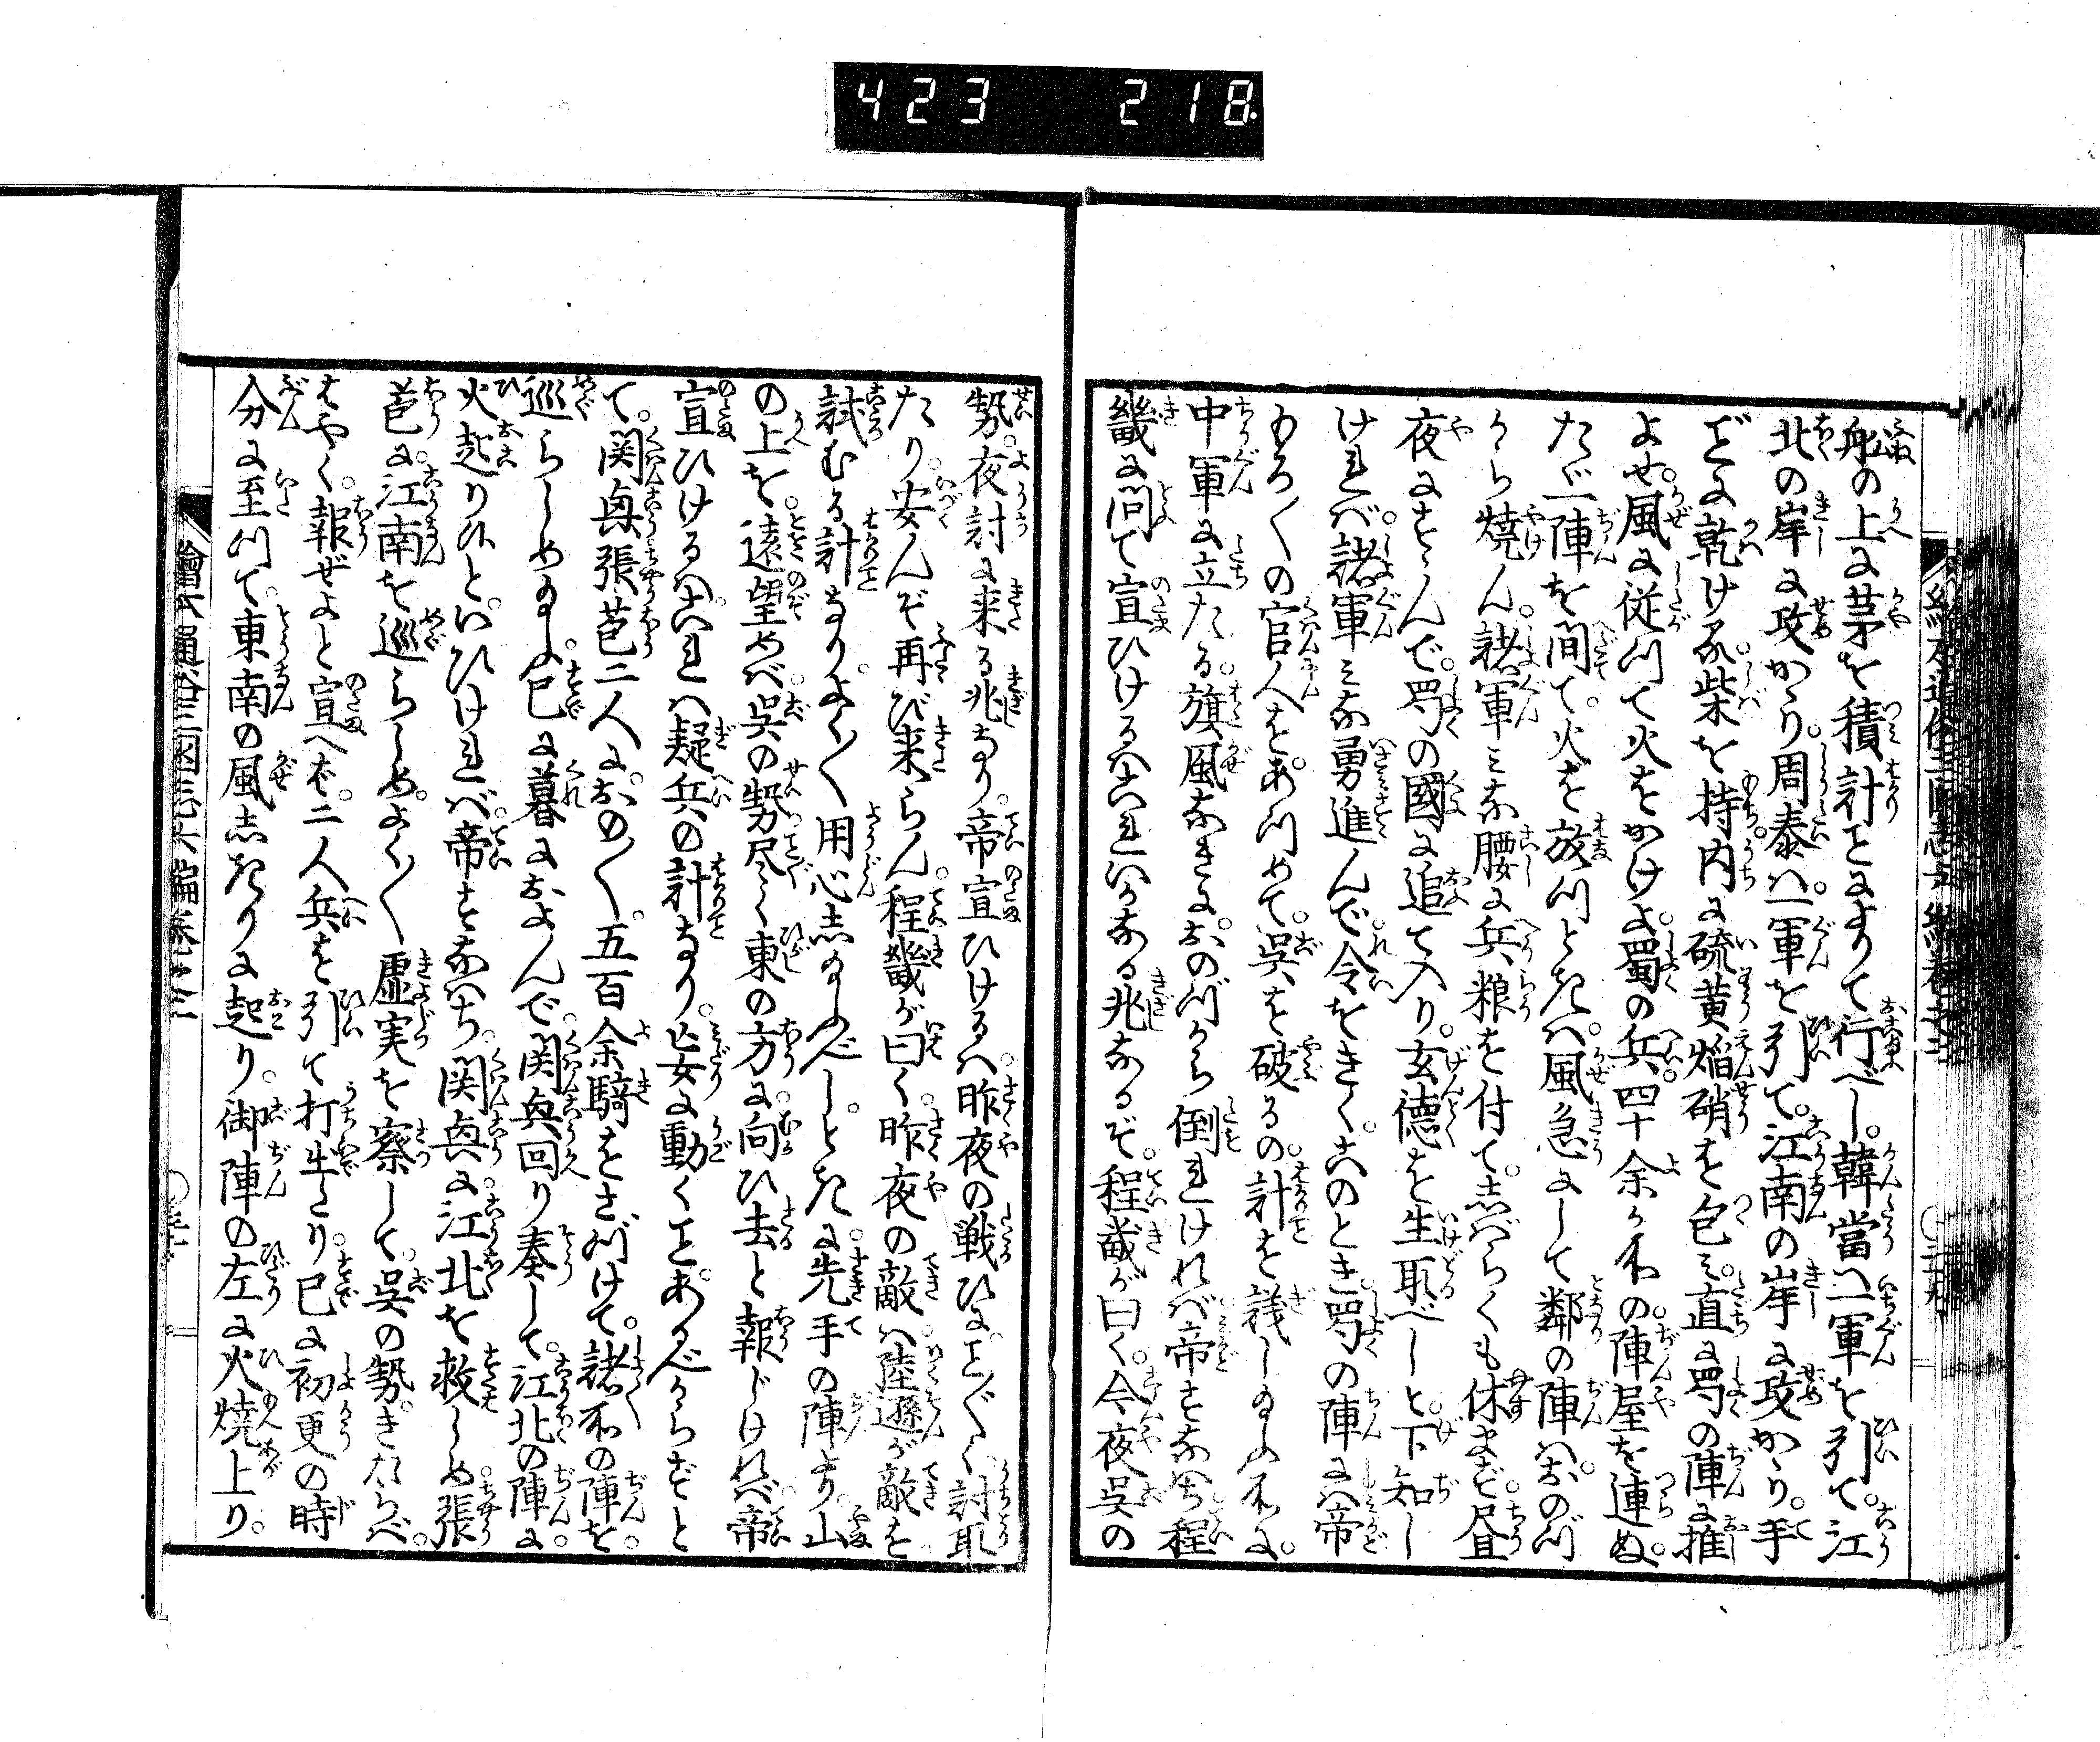 423 218
舟の上に茅を積計ことによりて行べし。韓當ハ一軍を引て。江
北の岸に攻かゝり。周泰ハ。一軍を引て。江南の岸に攻かゝり。手
ごとに乾ける。柴を持。内に硫黄焔硝を包ミ。直に蜀の陣に推
よせ。風に従つて火をかけよ。蜀の兵四十余ヶ所の。陣屋を連ぬ。
たゞ一陣を間て。火を放つときハ。風急にして鄰の陣ハ。おのづ
から焼ん。諸軍ミな腰に兵粮を付て。志ばらくも休まず。昼
夜にすゝんで。蜀の國に追て入り。玄徳を生取べしと。下知し
けれバ。諸軍ミな勇進んで令をきく。此のとき。蜀の陣にハ帝
もろ〱の官人を。あつめて。呉を破るの。計を議し給ふ所に。
中軍に立たる。旗風なきに。おのづから倒れけれバ。帝すなハち程
畿に問て宣ひけるハ。これいかなる兆なるぞ。程畿が曰く。今夜呉の
勢。夜討に来る兆なり。帝宣ひけるハ。昨夜の戦ひに。こと〲く討取
たり。安んぞ再び来らん。程畿が曰く。昨夜の敵ハ。陸遜が敵を
試むる計なり。よく〱用心志給ふべし。ときに。先手の陣より。山
の上を。遠望めバ。呉の勢尽く東の方に。向ひ去と報じけれバ。帝
宣ひけるハ。これハ疑兵の計なり。妄に動くこと。あるべからずと
て。関興張苞二人に。おの〱。五百余騎をさづけて。諸所の陣を。
巡らしめ給ふ。已に暮におよんで。関興回り奏して。江北の陣に。
火起り候と。いひけれバ。帝すなハち。関興に江北を救しめ。張
苞に江南を巡らしめ。よく〱虚実を察して。呉の勢。きたらバ。
はやく。報ぜよと宣へバ。二人兵を引て打出たり。已に初更の時
分に至つて。東南の風志きりに起り。御陣の左に火燒上り。